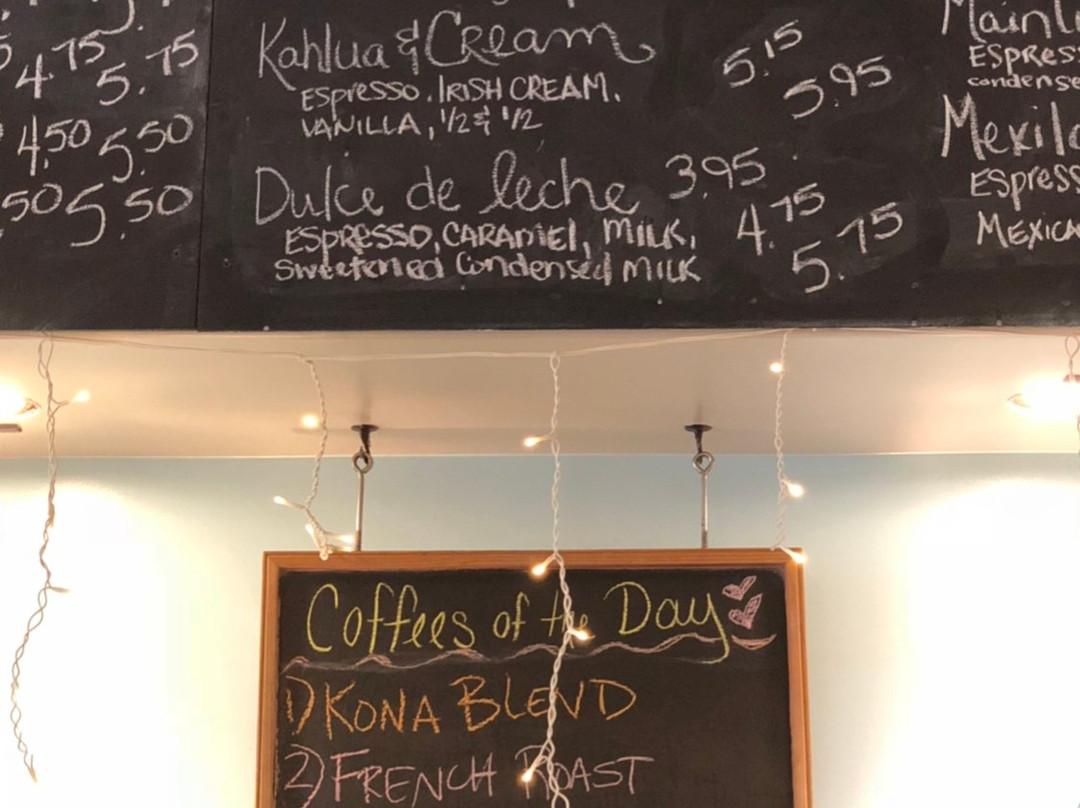 4.75
5.75
4.50 5.50
50 5.50
Kahlua & Cream 5.15
ESPRESSO, IRISH CREAM, 5.95
VANILLA, 1/2 & 1/2
Dulce de leche 3.95
ESPRESSO, CARAMEL, MILK, 4.75
Sweetened Condensed MILK 5.75
ESPRESS
condense
ESPRESS
MEXICA
Coffees of the Day
1) KONA BLEND
2) FRENCH ROAST